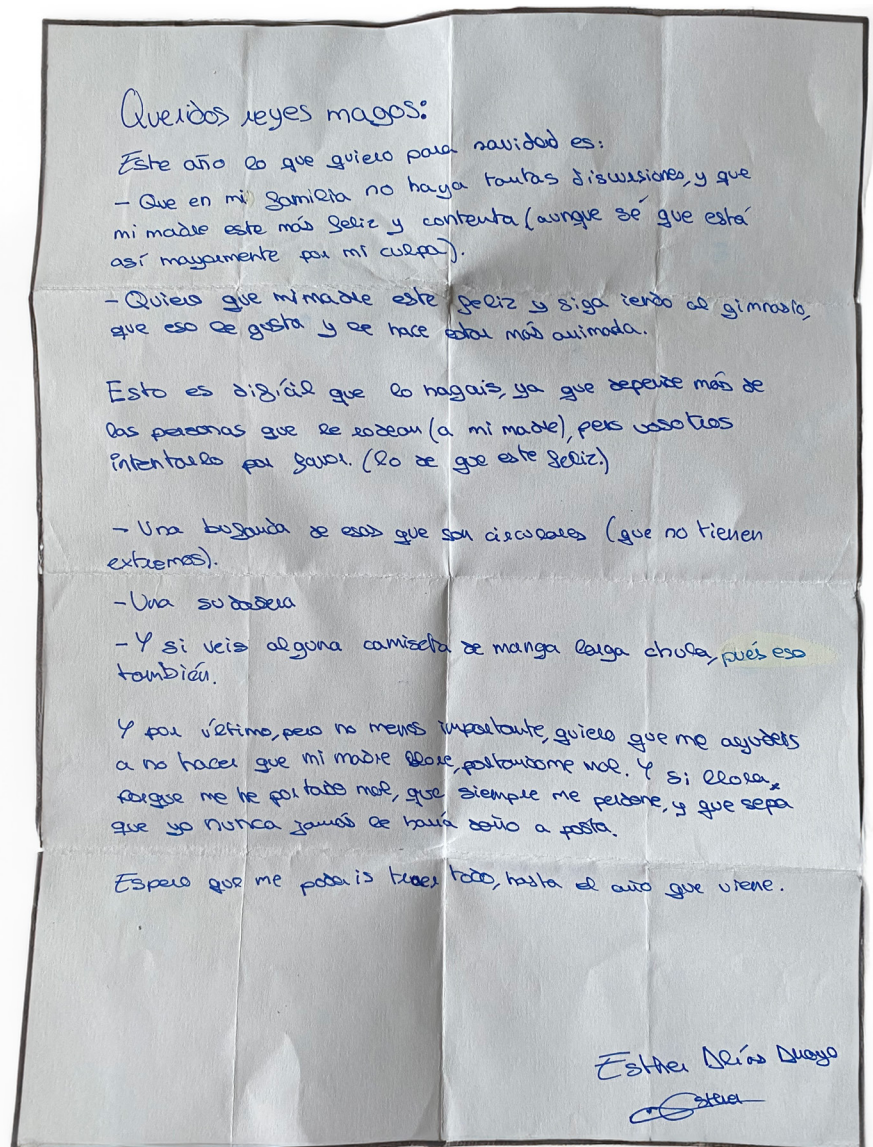 Queridos reyes magos:
Este año lo que quiero para navidad es:
- Que en mi familia no haya tantas discusiones, y que
mi madre este más feliz y contenta (aunque sé que está
así mayormente por mi culpa).
- Quiero que mi madre este feliz y siga iendo al gimnasio,
que eso le gusta y le hace estar más animada.
Esto es difícil que lo hagais, ya que depende más de
las personas que le rodean (a mi madre), pero vosotros
intentarlo por favor. (lo de que este feliz.)
- Una bufanda de esas que son circulares (que no tienen
extremos).
- Una sudadera
- Y si veis alguna camiseta de manga larga chula, pués eso
también.
Y por último, pero no menos importante, quiero que me ayudéis
a no hacer que mi madre llore, portandome mal. Y si llora,
porque me he portado mal, que siempre me perdone, y que sepa
que yo nunca jamás le haría daño a posta.
Espero que me podais traer todo, hasta el año que viene.
Esther
Esther